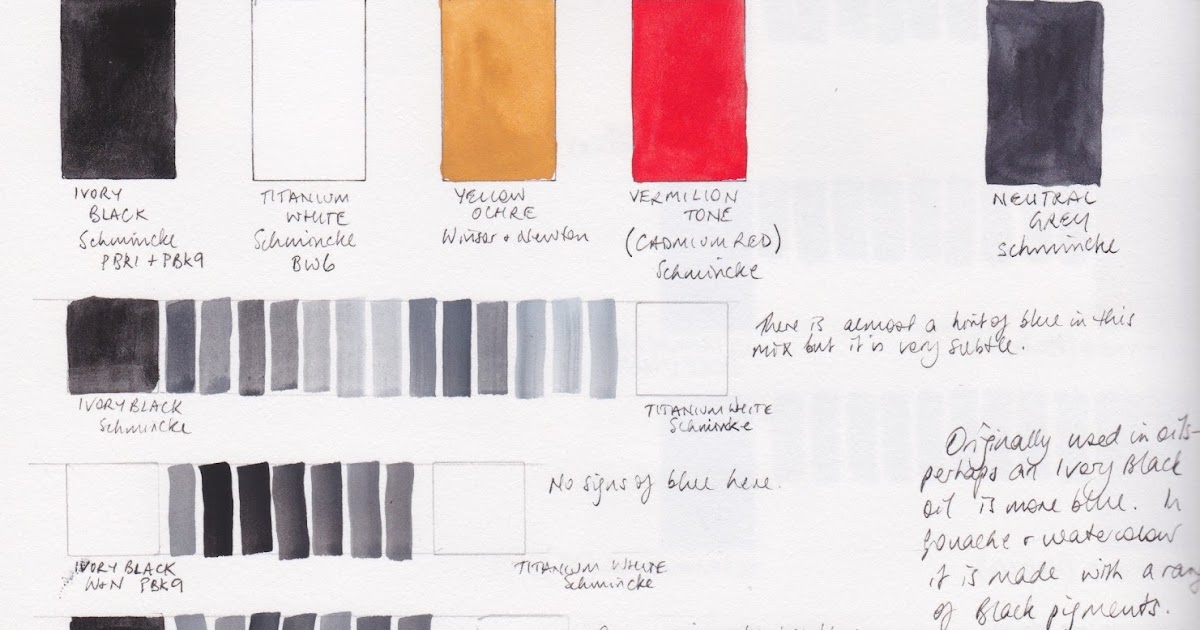 IVORY
BLACK
Schmincke
PBK1 + PBK9
TITANIUM
WHITE
Schmincke
BW6
YELLOW
OCHRE
Winsor + Newton
VERMILION
TONE
(CADMIUM RED)
Schmincke
NEUTRAL
GREY
Schmincke
There is almost a hint of blue in this
mix but it is very subtle.
IVORY BLACK
Schmincke
TITANIUM WHITE
Schmincke
No signs of blue here.
IVORY BLACK
W+N PBK9
TITANIUM WHITE
Schmincke
Originally used in oils -
perhaps an Ivory Black
oil is more blue. In
gouache + watercolour
it is made with a rang
of Black pigments.